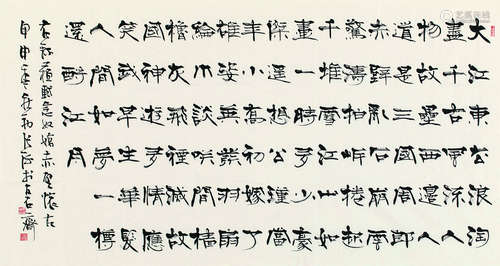 大江東去浪淘
盡千古風流人
物故壘西邊人
道是三國周郎
赤壁亂石崩雲
驚濤拍岸捲起
千堆雪江山如
畫一時多少豪
傑遙想公瑾當
年小喬初嫁了
雄姿英發羽扇
綸巾談笑間檣
櫓灰飛煙滅故
國神遊多情應
笑我早生華髮
人間如夢一樽
還酹江月
蘇軾念奴嬌赤壁懷古
甲申年 书 齋